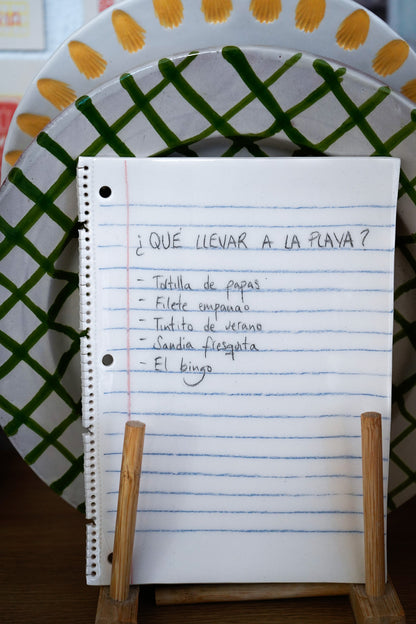 ¿QUÉ LLEVAR A LA PLAYA?
- Tortilla de papas
- Filete empanao
- Tintito de verano
- Sandia fresquita
- El bingo